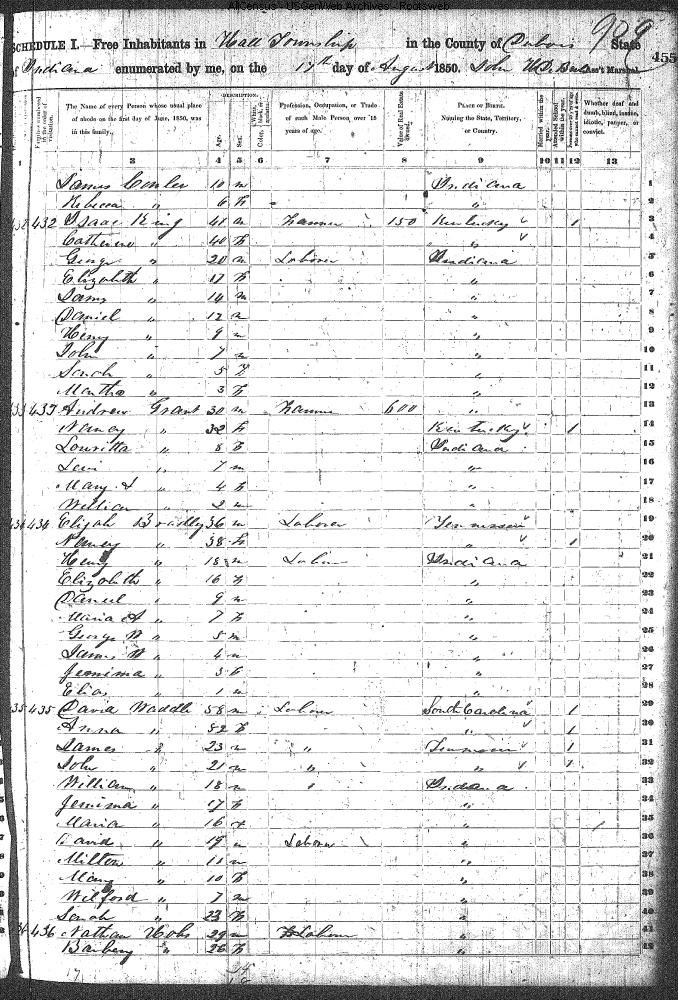 AllCensus - USGenWeb Archives - Rootsweb
929
SCHEDULE I.—Free Inhabitants in Hall Township in the County of Dubois State
455
of Indiana enumerated by me, on the 17th day of August 1850. John Ass't Marshal.
DESCRIPTION.
The Name of every Person whose usual place of abode on the first day of June, 1850, was in this family. Age. Sex. Color, Profession, Occupation, or Trade of each Male Person over 15 years of age. Value of Real Estate owned. PLACE OF BIRTH. Naming the State, Territory, or Country. Married within the year. Attended School within the year. Whether deaf and dumb, blind, insane, idiotic, pauper, or convict.
1 3 4 5 6 7 8 9 10 11 12 13
James 10 m Indiana 1
Rebecca " 6 f " 2
432 432 Isaac King 41 m Farmer 150 Kentucky 1 3
Catherine " 40 f " 4
George " 20 m Laborer Indiana 5
Elizabeth " 17 f " 6
James " 14 m " 7
Daniel " 12 m " 8
Henry " 9 m " 9
John " 7 m " 10
Sarah " 5 f " 11
Martha " 3 f " 12
433 433 Andrew Grant 30 m Farmer 600 " 13
Nancy " 32 f Kentucky 1 14
Louritta " 8 f Indiana 15
Levi " 7 m " 16
Mary " 4 f " 17
William " 2 m " 18
434 434 Elijah Bradley 36 m Laborer Tennessee 19
Nancy " 38 f " 1 20
Henry " 18 m Labor Indiana 21
Elizabeth " 16 f " 22
Daniel " 9 m " 23
Maria A " 7 f " 24
George W " 5 m " 25
James W " 4 m " 26
Jemima " 3 f " 27
Elias " 1 m " 28
435 435 David Waddle 58 m Laborer South Carolina 1 29
Anna " 52 f " 1 30
James " 23 m " Tennessee 1 31
John " 21 m " " 1 32
William " 18 m " Indiana 33
Jemima " 17 f " 34
Maria " 16 f " 35
David " m Laborer " 36
Milton " 11 m " 37
Mary " 10 f " 38
Wilford " 7 m " 39
Sarah " 23 f " 40
436 436 Nathan Hobs 29 m Laborer " 41
" 26 f " 42
17